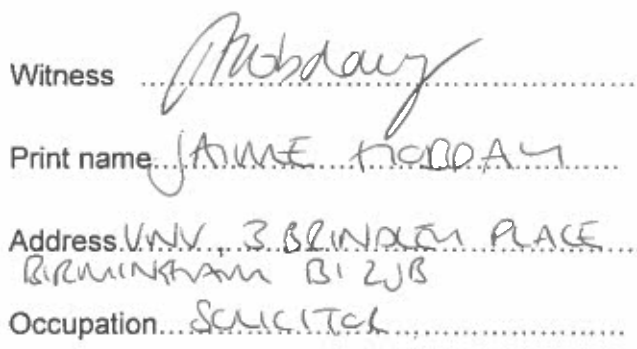 Witness J Hobday
Print name JAIME HOBDAY
Address VWV, 3 BRINDLEY PLACE
BIRMINGHAM B1 2JB
Occupation SOLICITOR